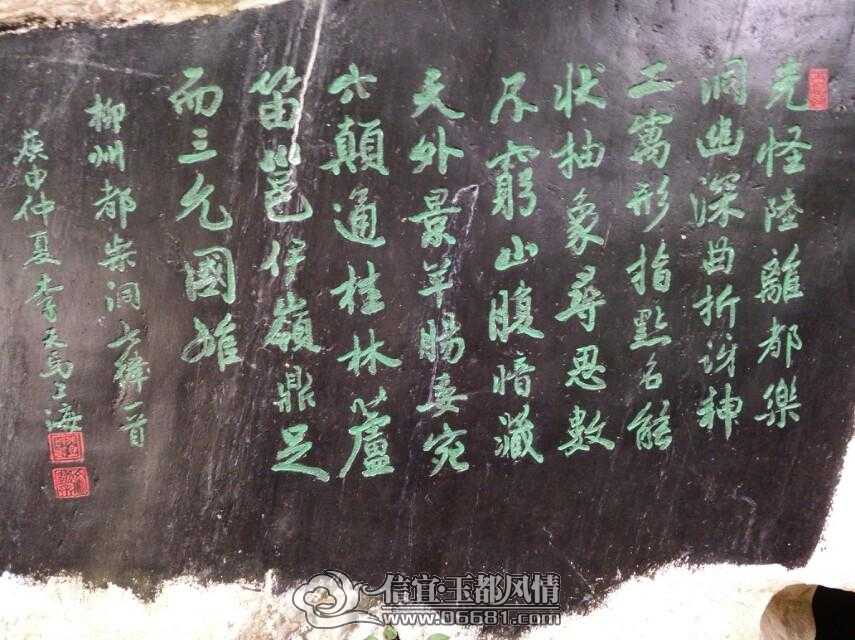 光怪陸離都樂
洞幽深曲折訝神
工寓形指點名能
狀抽象尋思數
不窮山腹暗藏
天外景羊腸委宛
穴顛通桂林蘆
笛邕伊嶺鼎足
而三允國雄
柳州都樂洞七律一首
庚申仲夏李天馬上海
信宜·玉都风情
www.06681.com